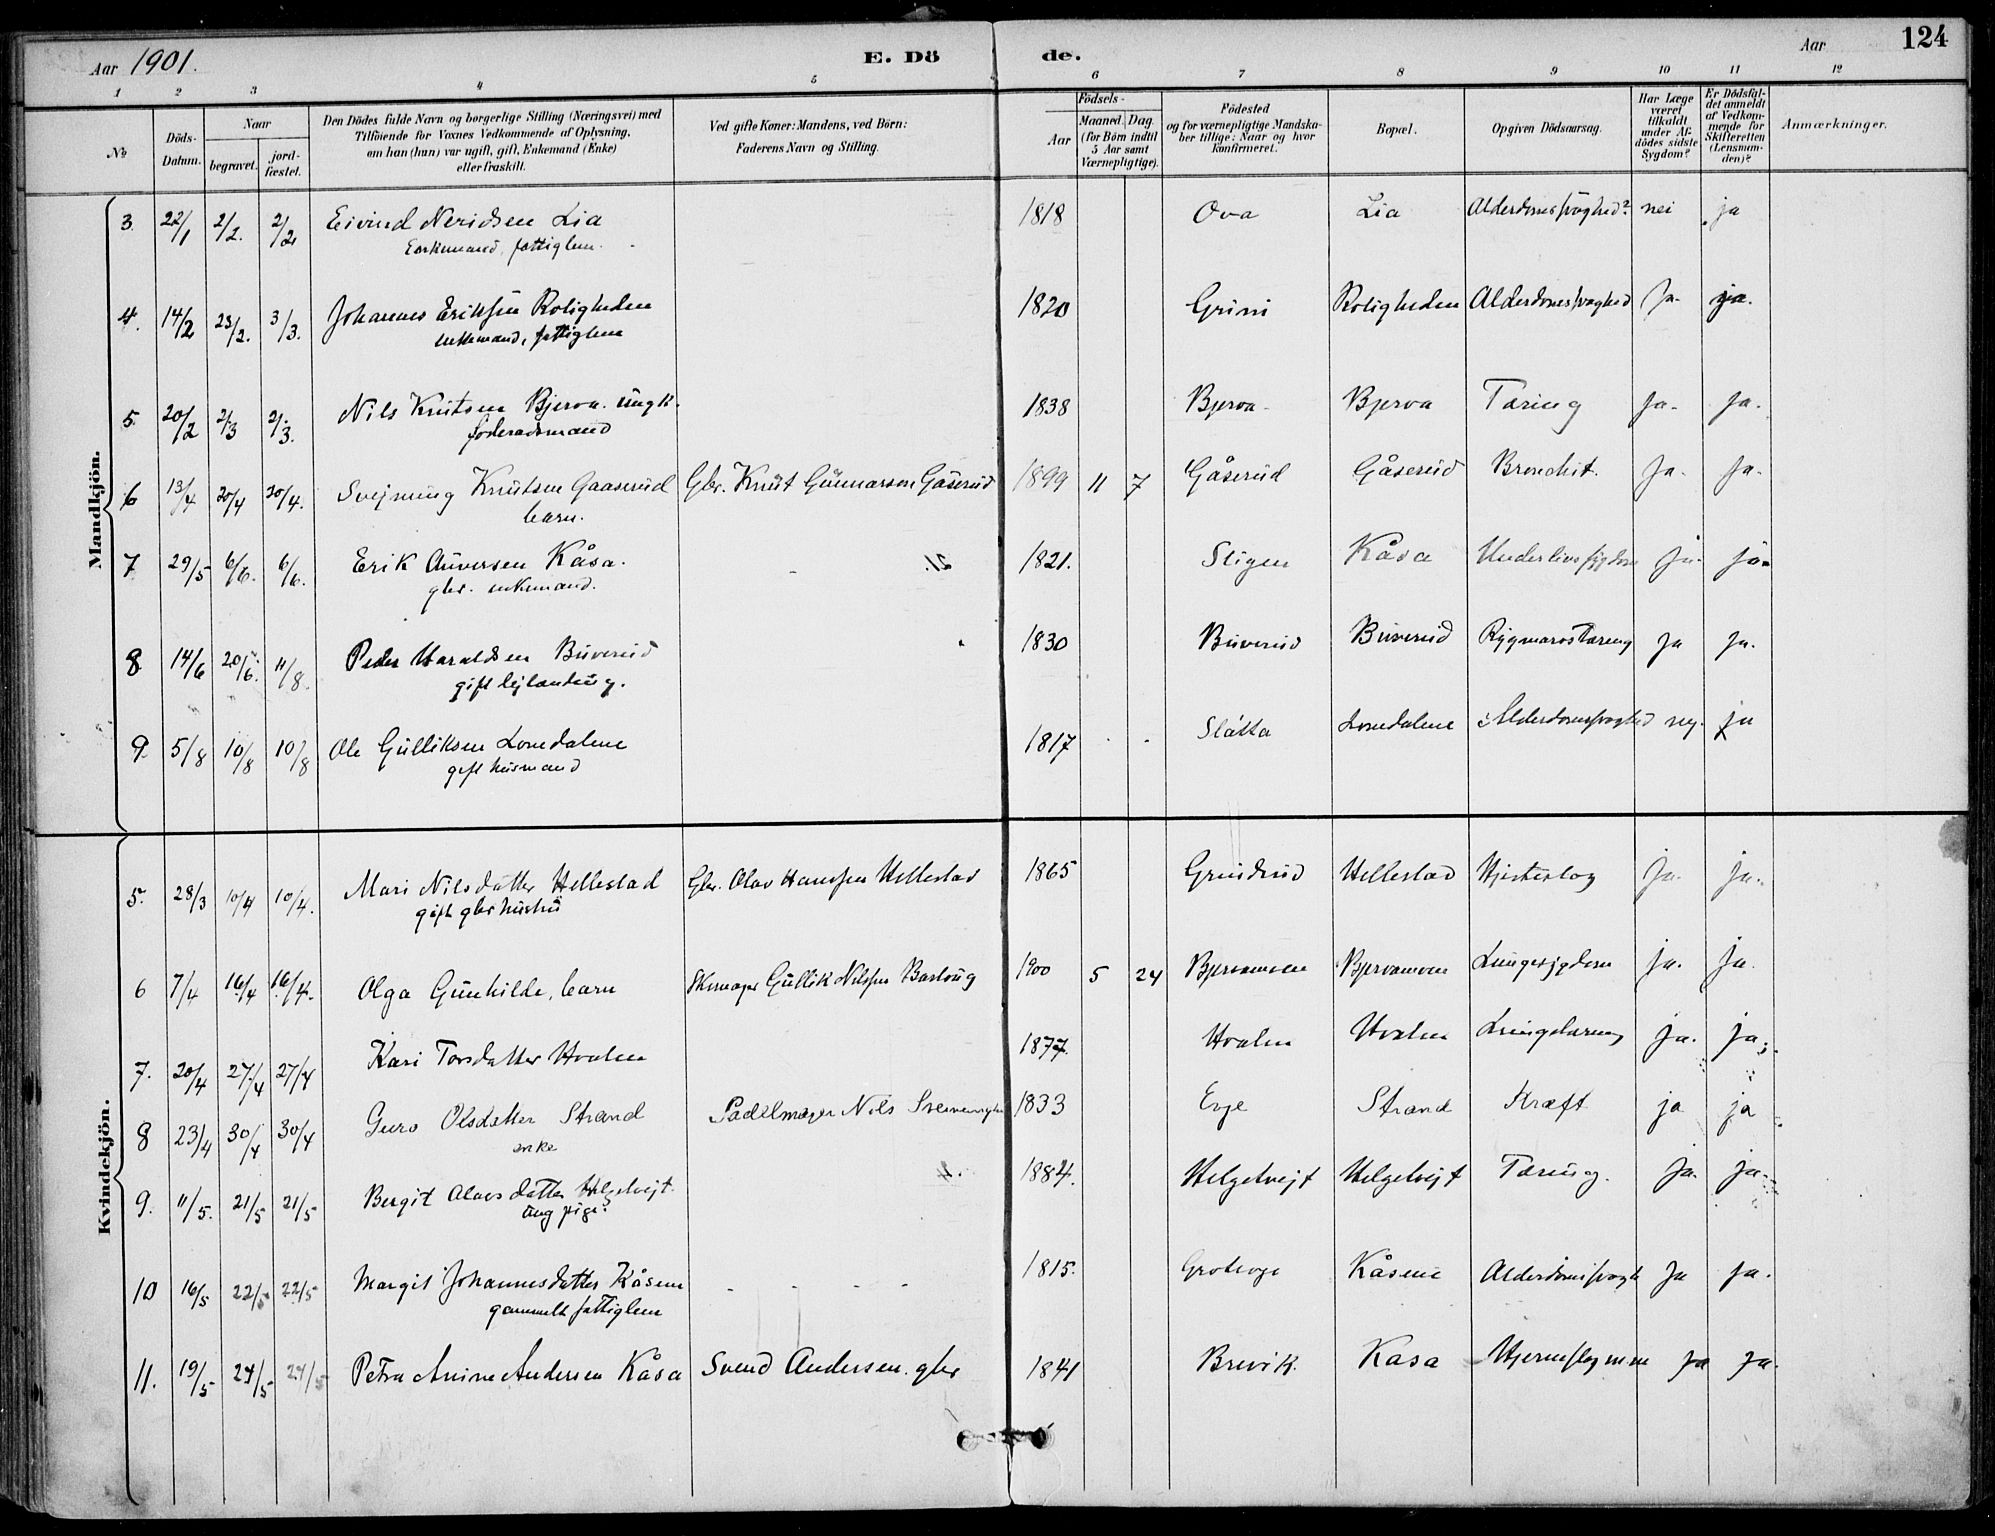 Aar 1901.
E. Dö
de.
Aar
124
1 2 3 4 5 6 7 8 9 10 11 12
No
Döds-Datum.
Naar
begravet.
jord-fæstet.
Den Dödes fulde Navn og borgerlige Stilling (Næringsvei) med
Tilföiende for Voxnes Vedkommende af Oplysning,
om han (hun) var ugift, gift, Enkemand (Enke)
eller fraskilt.
Ved gifte Koner: Mandens, ved Börn:
Faderens Navn og Stilling.
Födsels-
Aar
Maaned. Dag.
(for Börn indtil
5 Aar samt
Værnepligtige).
Födested
og for værnepligtige Mandska-
ber tillige: Naar og hvor
konfirmeret.
Bopæl.
Opgiven Dödsaarsag.
Har Læge
været
tilkaldt
under Af-
dödes sidste
Sygdom?
Er Dödsfal-
det anmeldt
af Vedkom-
mende for
Skifteretten
(Lensman-
den)?
Anmærkninger.
Mandkjön.
3. 22/1 2/2. 2/2. Eivind Neridsen Lia 1818 Ova Lia Alderdomssvaghed? nei ja
Enkemand, fattiglem.
4. 14/2 23/2. 3/3. Johannes Eriksen Roligheden 1820 Grini Roligheden Alderdomssvaghed ja. ja.
enkemand, fattiglem
5. 20/2 2/3 2/3. Nils Knutsen Bjerva. ungk. 1838 Bjerva Bjerva Tæring ja. ja.
föderaadsmand
6 13/4 20/4 20/4. Svejnung Knutsen Gaaserud Gbr. Knut Gunnarson Gåserud 1899 11 7 Gåserud Gåserud Bronchit. ja. ja.
barn.
7 29/5 6/6. 6/6. Erik Anversen Kåsa. 1821. Stigen Kåsa Underlivssygdom ja. ja.
gbr. enkemand.
8 14/6 20/6. 11/8. Peder Haraldsen Buverud 1830 Buverud Buverud Rygmarvstæring ja ja.
gift lejlænding.
9. 5/8 10/8 10/8 Ole Gulliksen Lonedalene 1817 Slåtta Lonedalene Alderdomssvaghed nej. ja
gift husmand
Kvindekjön.
5. 28/3 10/4 10/4. Mari Nilsdatter Hellestad Gbr. Olav Hanssen Hellestad 1865 Grindrud Hellestad Hjerteslag ja. ja.
gift gbr hustru
6 7/4 16/4 16/4. Olga Gunhilde, barn Skomager Gullik Nilssen 1900 5 24 Bjervamoen Bjervamoen Lungesygdom ja. ja.
7. 20/4 27/4 27/4 Kari Torsdatter Hvalen 1877. Hvalen Hvalen Lungetæring ja. ja.
8 23/4 30/4 30/4 Guro Olsdatter Strand Sadelmager Nils 1833 Evje Strand Kræft ja ja
enke
9. 11/5. 21/5 21/5 Bergit Olavsdatter Helgetvejt. 1884. Helgetvejt Helgetvejt Tæring. ja. ja.
ung pige.
10 16/5 22/5 22/5 Margit Johannesdatter Kåsene 1815. Kåsene Alderdomssvagh ja ja.
gammelt fattiglem
11. 19/5 24/5 24/5 Petra Anine Andersen Kåsa Svend Andersen. gbr 1841 Brevik. Kåsa ja ja.